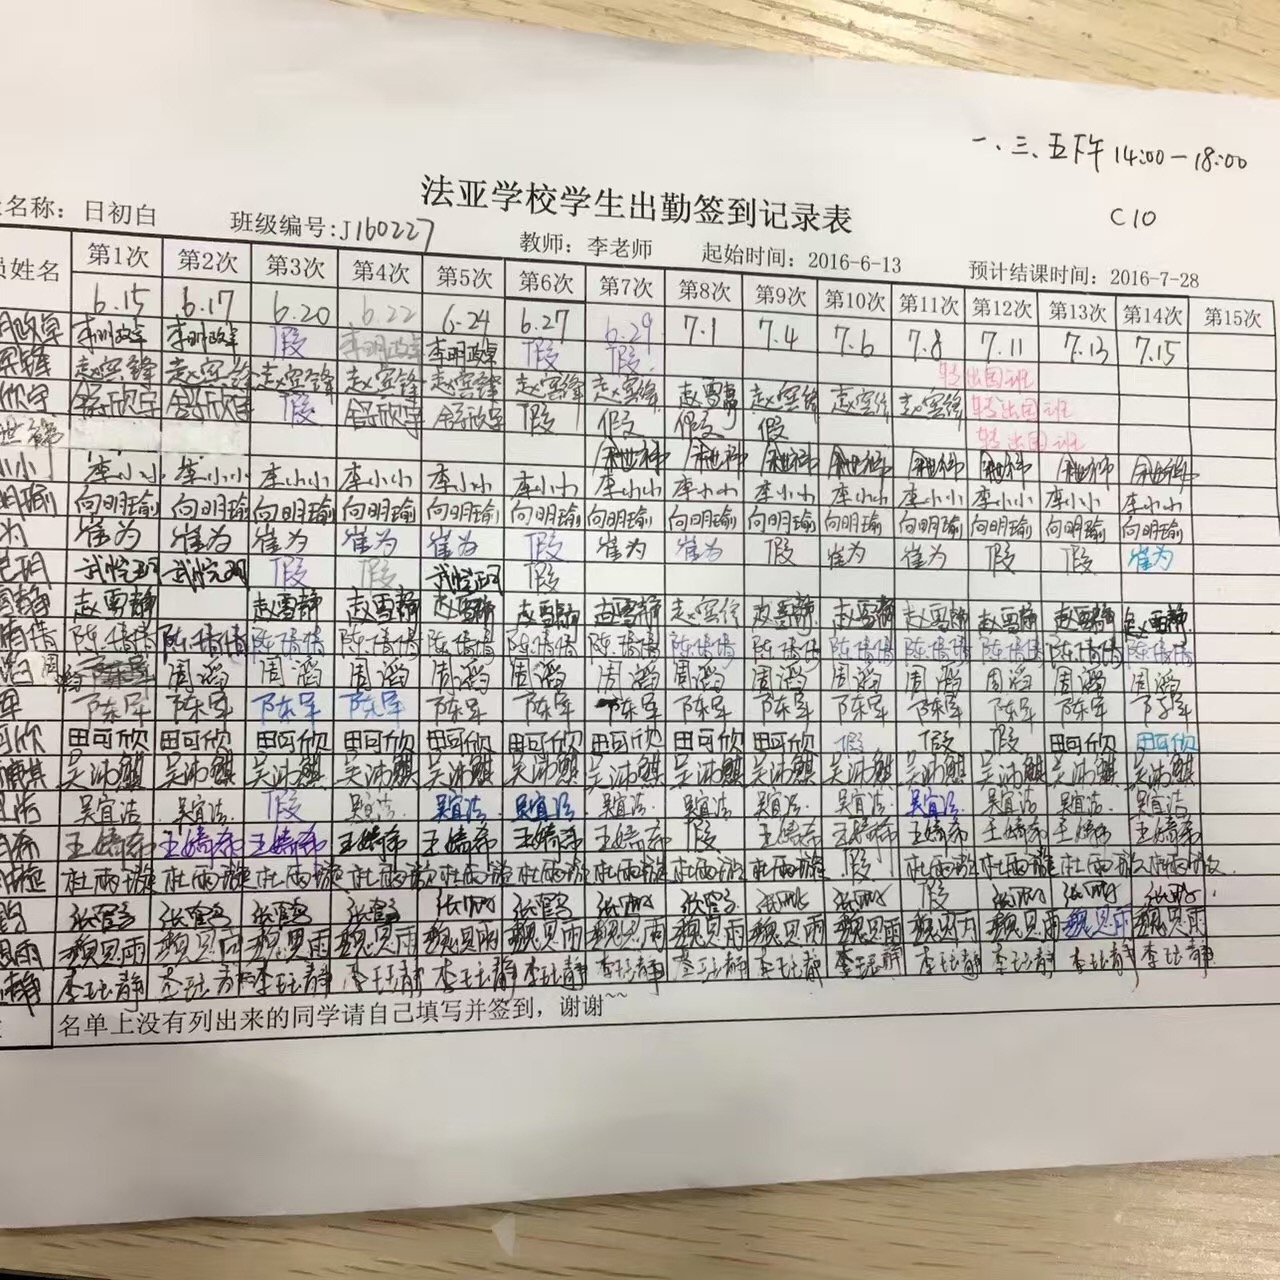 一、三、五下午14:00—18:00
法亚学校学生出勤签到记录表
C10
名称：日初白 班级编号:J160227 教师：李老师 起始时间：2016-6-13 预计结课时间：2016-7-28
姓名 第1次 第2次 第3次 第4次 第5次 第6次 第7次 第8次 第9次 第10次 第11次 第12次 第13次 第14次 第15次
6.15 6.17 6.20 6.22 6.24 6.27 6.29 7.1 7.4 7.6 7.8 7.11 7.13 7.15
李明政卓 李明政卓 假 李明政卓 李明政卓 假 假 转出国班
赵窑锋 赵窑锋 赵窑锋 赵窑锋 赵窑锋 赵窑锋 赵窑锋 赵雪静 赵窑锋 赵窑锋 赵窑锋 转出国班
舒欣宇 舒欣宇 假 舒欣宇 舒欣宇 假 假 假 假 转出国班
小小 李小小 李小小 李小小 李小小 李小小 李小小 李小小 李小小 李小小 李小小 李小小 李小小 李小小 李小小
明瑜 向明瑜 向明瑜 向明瑜 向明瑜 向明瑜 向明瑜 向明瑜 向明瑜 向明瑜 向明瑜 向明瑜 向明瑜 向明瑜 向明瑜
崔为 崔为 崔为 崔为 崔为 假 崔为 崔为 假 崔为 崔为 假 假 崔为
武悦玥 武悦玥 假 假 武悦玥 假
赵雪静 赵雪静 赵雪静 赵雪静 赵雪静 赵雪静 赵窑锋 赵雪静 赵雪静 赵雪静 赵雪静 赵雪静 赵雪静
陈倩倩 陈倩倩 陈倩倩 陈倩倩 陈倩倩 陈倩倩 陈倩倩 陈倩倩 陈倩倩 陈倩倩 陈倩倩 陈倩倩 陈倩倩 陈倩倩
周滔 周滔 周滔 周滔 周滔 周滔 周滔 周滔 周滔 周滔 周滔 周滔 周滔 周滔
陈军 陈军 陈军 陈军 陈军 陈军 陈军 陈军 陈军 陈军 陈军 陈军 陈军
可欣 田可欣 田可欣 田可欣 田可欣 田可欣 田可欣 田可欣 田可欣 田可欣 假 假 假 田可欣 田可欣
吴沛麒 吴沛麒 吴沛麒 吴沛麒 吴沛麒 吴沛麒 吴沛麒 吴沛麒 吴沛麒 吴沛麒 吴沛麒 吴沛麒 吴沛麒 吴沛麒
吴宜洁 吴宜洁 假 吴宜洁 吴宜洁 吴宜洁 吴宜洁 吴宜洁 吴宜洁 吴宜洁 吴宜洁 吴宜洁 吴宜洁 吴宜洁
王婧希 王婧希 王婧希 王婧希 王婧希 王婧希 王婧希 假 王婧希 王婧希 王婧希 王婧希 王婧希 王婧希
杜雨璇 杜雨璇 杜雨璇 杜雨璇 杜雨璇 杜雨璇 杜雨璇 杜雨璇 杜雨璇 假 杜雨璇 杜雨璇 杜雨璇 杜雨璇
张鹤 张鹤 张鹤 张鹤 张鹤 张鹤 假
思雨 魏思雨 魏思雨 魏思雨 魏思雨 魏思雨 魏思雨 魏思雨 魏思雨 魏思雨 魏思雨 魏思雨 魏思雨 魏思雨 魏思雨
李珏静 李珏静 李珏静 李珏静 李珏静 李珏静 李珏静 李珏静 李珏静 李珏静 李珏静 李珏静 李珏静 李珏静
名单上没有列出来的同学请自己填写并签到，谢谢~~